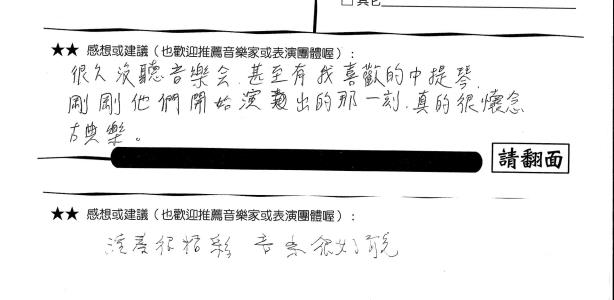 □其它
★★ 感想或建議（也歡迎推薦音樂家或表演團體喔）：
很久沒聽音樂会,甚至有我喜歡的中提琴,
剛剛他們開始演出的那一刻,真的很懷念
古典樂。
請翻面
★★ 感想或建議（也歡迎推薦音樂家或表演團體喔）：
演奏很精彩 音樂很好聽